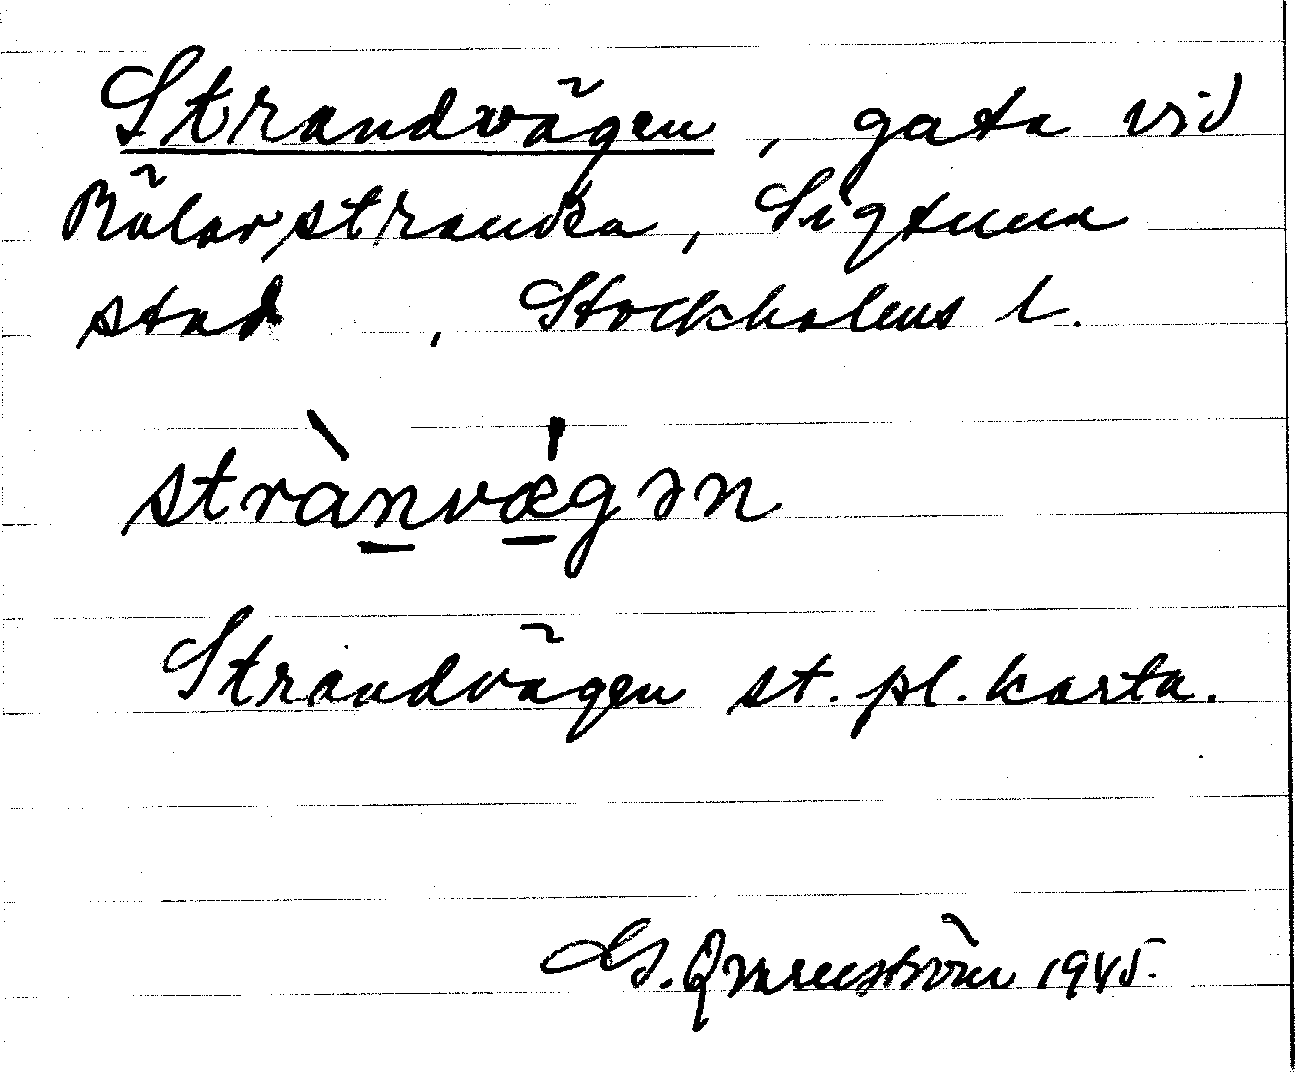 Strandvägen, gata vid
Mälarstranden, Sigtuna
stad, Stockholms l.
strànvǽgən
Strandvägen st. pl. karta.
G. Qvarnström 1945.